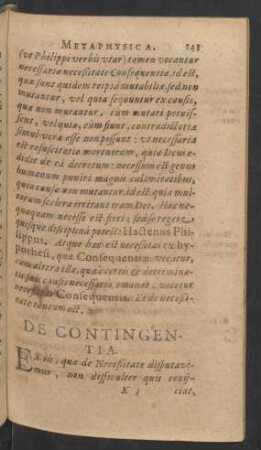 METAPHYSICA. 141
(ut Philippi verbis utar) tamen vocantur
necessaria necessitate Consequentiæ, id est,
quæ sunt quidem respsâ mutabilia, sed non
mutantur, vel quia sequuntur ex causis,
quæ non mutantur, cùm mutari potuis-
sent, vel quia, cùm fiunt, contradictoria
simul vera esse non possunt: ut necessaria
est resuscitatio mortuorum, quia Deus æ-
didit de ea decretum: necesse est genus
humanum puniri magnis calamitatibus,
quia causæ non mutantur, id est, quia mul-
torum scelera irritant iram Dei. Hæc ne-
quaquam necesse est fieri, sed se regere
quisque disciplinâ potest: Hactenus Phi-
lippus. Atque hæc est necessitas ex hy-
pothesi, quæ Consequentiæ vocatur,
cum altera illa, quæ certò & determinatè
suis causis necessariò emanat, vocetur
Consequentis. Et de necessi-
tate tantum est.
DE CONTINGEN-
TIA.
EX iis, quæ de Necessitate disputavi-
mus, non difficulter quis conij-
K 3 ciat,